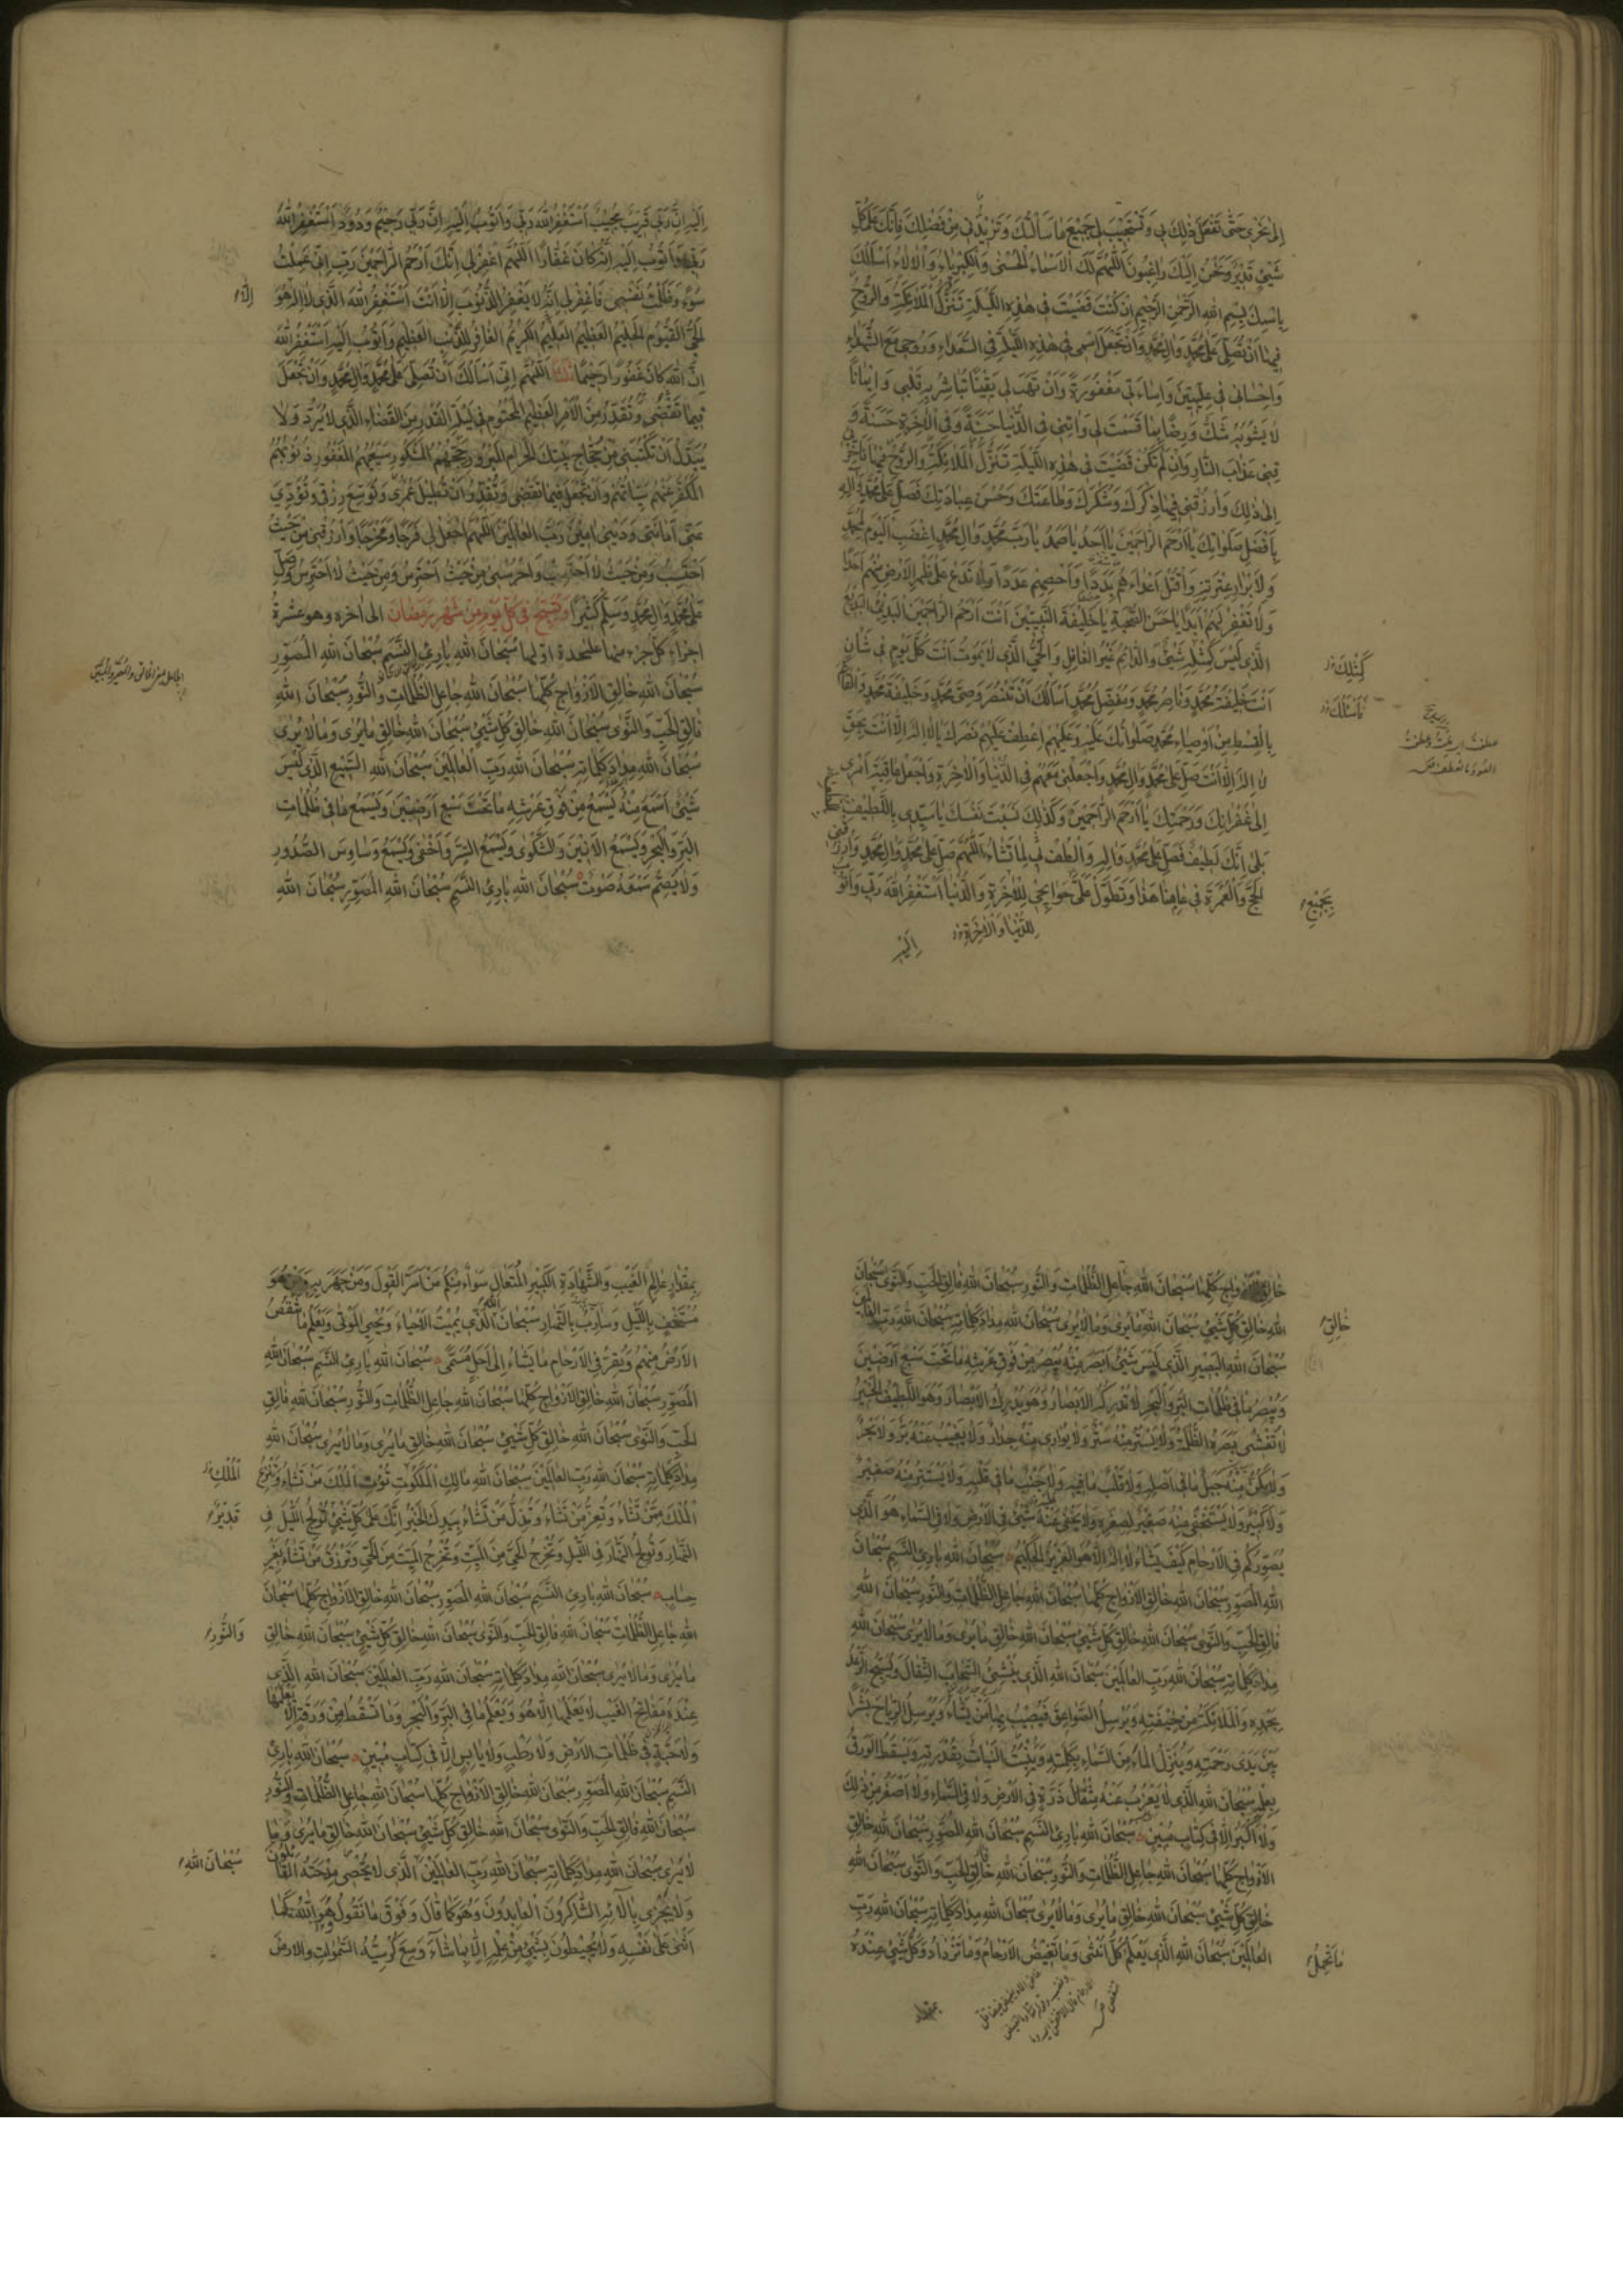 اِلىٰ غَيْرى حَتّٰى تَفْعَلَ ذٰلِكَ بى وَتَسْتَجيبَ لى جَميعَ مٰا سَأَلْتُكَ وَتَزيدَنى مِنْ فَضْلِكَ فَاِنَّكَ عَلىٰ كُلِّ
شَيْئٍ قَديرٌ وَنَحْنُ اِلَيْكَ رٰاغِبُونَ اَللّٰهُمَّ لَكَ الْاَسْمٰاءُ الْحُسْنىٰ وَالْكِبْرِيٰاءُ وَالْاٰلٰاءُ اَسْاَلُكَ
بِاسْمِكَ بِسْمِ اللهِ الرَّحْمٰنِ الرَّحيمِ اِنْ كُنْتَ قَضَيْتَ فى هٰذِهِ اللَّيْلَةِ تَنَزُّلَ الْمَلٰائِكَةِ وَالرُّوحِ
فيهٰا اَنْ تُصَلِّىَ عَلىٰ مُحَمَّدٍ وَاٰلِ مُحَمَّدٍ وَاَنْ تَجْعَلَ اسْمى فى هٰذِهِ اللَّيْلَةِ فِى السُّعَدٰاءِ وَرُوحى مَعَ الشُّهَدٰاءِ
وَاِحْسٰانى فى عِلِّيّينَ وَاِسٰاءَتى مَغْفُورَةً وَاَنْ تَهَبَ لى يَقينًا تُبٰاشِرُ بِهِ قَلْبى وَايمٰانًا
لٰا يَشُوبُهُ شَكٌّ وَرِضًا بِمٰا قَسَمْتَ لى وَاٰتِنى فِى الدُّنْيٰا حَسَنَةً وَفِى الْاٰخِرَةِ حَسَنَةً وَ
قِنى عَذٰابَ النّٰارِ وَاِنْ لَمْ تَكُنْ قَضَيْتَ فى هٰذِهِ اللَّيْلَةِ تَنَزُّلَ الْمَلٰائِكَةِ وَالرُّوحِ فيهٰا فَاَخِّرْنى
اِلىٰ ذٰلِكَ وَارْزُقْنى فيهٰا ذِكْرَكَ وَشُكْرَكَ وَطٰاعَتَكَ وَحُسْنَ عِبٰادَتِكَ فَصَلِّ عَلىٰ مُحَمَّدٍ وَاٰلِهِ
بِاَفْضَلِ صَلَوٰاتِكَ يٰا اَرْحَمَ الرّٰاحِمينَ يٰا اَحَدُ يٰا صَمَدُ يٰا رَبَّ مُحَمَّدٍ وَاٰلِ مُحَمَّدٍ اِغْضَبِ الْيَوْمَ لِمُحَمَّدٍ
وَلِاَبْرٰارِ عِتْرَتِهِ وَاقْتُلْ اَعْدٰاءَهُمْ بَدَدًا وَاَحْصِهِمْ عَدَدًا وَلٰا تَدَعْ عَلىٰ ظَهْرِ الْاَرْضِ مِنْهُمْ اَحَدًا
وَلٰا تَغْفِرْ لَهُمْ اَبَدًا يٰا حَسَنَ الصُّحْبَةِ يٰا خَليفَةَ النَّبِيّينَ اَنْتَ اَرْحَمُ الرّٰاحِمينَ الْبَدىءُ الْبَديعُ
الَّذى لَيْسَ كَمِثْلِهِ شَيْئٌ وَالدّٰائِمُ غَيْرُ الْغٰافِلِ وَالْحَىُّ الَّذى لٰا يَمُوتُ اَنْتَ كُلَّ يَوْمٍ فى شَأْنٍ
كَمِثْلِكَ
اَنْتَ خَليفَةُ مُحَمَّدٍ وَنٰاصِرُ مُحَمَّدٍ وَمُفَضِّلُ مُحَمَّدٍ اَسْاَلُكَ اَنْ تَنْصُرَ وَصِىَّ مُحَمَّدٍ وَخَليفَةَ مُحَمَّدٍ وَالْقٰائِمَ
بِالْقِسْطِ مِنْ اَوْصِيٰاءِ مُحَمَّدٍ صَلَوٰاتُكَ عَلَيْهِ وَعَلَيْهِمْ اِعْطِفْ عَلَيْهِمْ نَصْرَكَ يٰا لٰا اِلٰهَ اِلّٰا اَنْتَ بِحَقِّ
لٰا اِلٰهَ اِلّٰا اَنْتَ صَلِّ عَلىٰ مُحَمَّدٍ وَاٰلِ مُحَمَّدٍ وَاجْعَلْنى مَعَهُمْ فِى الدُّنْيٰا وَالْاٰخِرَةِ وَاجْعَلْ عٰاقِبَةَ اَمْرى
اِلىٰ غُفْرٰانِكَ وَرَحْمَتِكَ يٰا اَرْحَمَ الرّٰاحِمينَ وَكَذٰلِكَ نَسَبْتَ نَفْسَكَ يٰا سَيِّدى بِاللَّطيفِ
بَلىٰ اِنَّكَ لَطيفٌ فَصَلِّ عَلىٰ مُحَمَّدٍ وَاٰلِهِ وَالْطُفْ لى لِمٰا تَشٰاءُ اَللّٰهُمَّ صَلِّ عَلىٰ مُحَمَّدٍ وَاٰلِ مُحَمَّدٍ وَارْزُقْنِى
الْحَجَّ وَالْعُمْرَةَ فى عٰامِنٰا هٰذٰا وَتَطَوَّلْ عَلَىَّ حَوٰائِجى لِلْاٰخِرَةِ وَالدُّنْيٰا اَسْتَغْفِرُ اللهَ رَبّى وَاَتُوبُ
بِجَميعِ
لِلدُّنْيٰا وَالْاٰخِرَةِ
اِلَيْهِ
اِلَيْهِ اِنَّ رَبّى قَريبٌ مُجيبٌ اَسْتَغْفِرُ اللهَ رَبّى وَاَتُوبُ اِلَيْهِ اِنَّ رَبّى رَحيمٌ وَدُودٌ اَسْتَغْفِرُ اللهَ
رَبّى وَاَتُوبُ اِلَيْهِ اِنَّهُ كٰانَ غَفّٰارًا اَللّٰهُمَّ اغْفِرْ لى اِنَّكَ اَرْحَمُ الرّٰاحِمينَ رَبِّ اِنّى عَمِلْتُ
سُوءً وَظَلَمْتُ نَفْسى فَاغْفِرْ لى اِنَّهُ لٰا يَغْفِرُ الذُّنُوبَ اِلّٰا اَنْتَ اَسْتَغْفِرُ اللهَ الَّذى لٰا اِلٰهَ اِلّٰا هُوَ
الْحَىُّ الْقَيُّومُ الْحَليمُ الْعَظيمُ الْعَليمُ الْكَريمُ الْغٰافِرُ لِلذَّنْبِ الْعَظيمِ وَاَتُوبُ اِلَيْهِ اَسْتَغْفِرُ اللهَ
اِنَّ اللهَ كٰانَ غَفُورًا رَحيمًا اَللّٰهُمَّ اِنّى اَسْاَلُكَ اَنْ تُصَلِّىَ عَلىٰ مُحَمَّدٍ وَاٰلِ مُحَمَّدٍ وَاَنْ تَجْعَلَ
فيمٰا تَقْضى وَتُقَدِّرُ مِنَ الْاَمْرِ الْعَظيمِ الْمَحْتُومِ فى لَيْلَةِ الْقَدْرِ مِنَ الْقَضٰاءِ الَّذى لٰا يُرَدُّ وَلٰا
يُبَدَّلُ اَنْ تَكْتُبَنى مِنْ حُجّٰاجِ بَيْتِكَ الْحَرٰامِ الْمَبْرُورِ حَجُّهُمُ الْمَشْكُورِ سَعْيُهُمُ الْمَغْفُورِ ذُنُوبُهُمُ
الْمُكَفَّرِ عَنْهُمْ سَيِّئٰاتُهُمْ وَاَنْ تَجْعَلَ فيمٰا تَقْضى وَتُقَدِّرُ اَنْ تُطيلَ عُمْرى وَتُوَسِّعَ رِزْقى وَتُؤَدِّىَ
عَنّى اَمٰانَتى وَدَيْنى اٰمينَ رَبَّ الْعٰالَمينَ اَللّٰهُمَّ اجْعَلْ لى فَرَجًا وَمَخْرَجًا وَارْزُقْنى مِنْ حَيْثُ
اَحْتَسِبُ وَمِنْ حَيْثُ لٰا اَحْتَسِبُ وَاحْرُسْنى مِنْ حَيْثُ اَحْتَرِسُ وَمِنْ حَيْثُ لٰا اَحْتَرِسُ وَصَلِّ
عَلىٰ مُحَمَّدٍ وَاٰلِ مُحَمَّدٍ وَسَلِّمْ كَثيرًا وَتُسَبِّحُ فى كُلِّ يَوْمٍ مِنْ شَهْرِ رَمَضٰانَ الى اخره وهو عشرة
اجزاء كل جزء منها على حدة اولها سُبْحٰانَ اللهِ بٰارِئِ النَّسَمِ سُبْحٰانَ اللهِ الْمُصَوِّرِ
سُبْحٰانَ اللهِ خٰالِقِ الْاَزْوٰاجِ كُلِّهٰا سُبْحٰانَ اللهِ جٰاعِلِ الظُّلُمٰاتِ وَالنُّورِ سُبْحٰانَ اللهِ
فٰالِقِ الْحَبِّ وَالنَّوىٰ سُبْحٰانَ اللهِ خٰالِقِ كُلِّ شَيْئٍ سُبْحٰانَ اللهِ خٰالِقِ مٰا يُرىٰ وَمٰا لٰا يُرىٰ
سُبْحٰانَ اللهِ مِدٰادَ كَلِمٰاتِهِ سُبْحٰانَ اللهِ رَبِّ الْعٰالَمينَ سُبْحٰانَ اللهِ السَّميعِ الَّذى لَيْسَ
شَيْئٌ اَسْمَعَ مِنْهُ يَسْمَعُ مِنْ فَوْقِ عَرْشِهِ مٰا تَحْتَ سَبْعِ اَرَضينَ وَيَسْمَعُ مٰا فى ظُلُمٰاتِ
الْبَرِّ وَالْبَحْرِ وَيَسْمَعُ الْاَنينَ وَالشَّكْوىٰ وَيَسْمَعُ السِّرَّ وَاَخْفىٰ وَيَسْمَعُ وَسٰاوِسَ الصُّدُورِ
وَلٰا يُصِمُّ سَمْعَهُ صَوْتٌ سُبْحٰانَ اللهِ بٰارِئِ النَّسَمِ سُبْحٰانَ اللهِ الْمُصَوِّرِ سُبْحٰانَ اللهِ
خٰالِقِ الْاَزْوٰاجِ كُلِّهٰا سُبْحٰانَ اللهِ جٰاعِلِ الظُّلُمٰاتِ وَالنُّورِ سُبْحٰانَ اللهِ فٰالِقِ الْحَبِّ وَالنَّوىٰ سُبْحٰانَ
اللهِ خٰالِقِ كُلِّ شَيْئٍ سُبْحٰانَ اللهِ مٰا يُرىٰ وَمٰا لٰا يُرىٰ سُبْحٰانَ اللهِ مِدٰادَ كَلِمٰاتِهِ سُبْحٰانَ اللهِ رَبِّ الْعٰالَمينَ
خٰالِقِ
سُبْحٰانَ اللهِ الْبَصيرِ الَّذى لَيْسَ شَيْئٌ اَبْصَرَ مِنْهُ يُبْصِرُ مِنْ فَوْقِ عَرْشِهِ مٰا تَحْتَ سَبْعِ اَرَضينَ
وَيُبْصِرُ مٰا فى ظُلُمٰاتِ الْبَرِّ وَالْبَحْرِ لٰا تُدْرِكُهُ الْاَبْصٰارُ وَهُوَ يُدْرِكُ الْاَبْصٰارَ وَهُوَ اللَّطيفُ الْخَبيرُ
لٰا تَغْشىٰ بَصَرَهُ الظُّلْمَةُ وَلٰا يُسْتَتَرُ مِنْهُ سِتْرٌ وَلٰا يُوٰارى مِنْهُ جِدٰارٌ وَلٰا يَغيبُ عَنْهُ بَرٌّ وَلٰا بَحْرٌ
وَلٰا يَكُنُّ مِنْهُ جَبَلٌ مٰا فى اَصْلِهِ وَلٰا قَلْبٌ مٰا فيهِ وَلٰا جَنْبٌ مٰا فى قَلْبِهِ وَلٰا يَسْتَتِرُ مِنْهُ صَغيرٌ
وَلٰا كَبيرٌ وَلٰا يَسْتَخْفى مِنْهُ صَغيرٌ لِصِغَرِهِ وَلٰا يَخْفىٰ عَلَيْهِ شَيْئٌ فِى الْاَرْضِ وَلٰا فِى السَّمٰاءِ هُوَ الَّذى
يُصَوِّرُكُمْ فِى الْاَرْحٰامِ كَيْفَ يَشٰاءُ لٰا اِلٰهَ اِلّٰا هُوَ الْعَزيزُ الْحَكيمُ سُبْحٰانَ اللهِ بٰارِئِ النَّسَمِ سُبْحٰانَ
اللهِ الْمُصَوِّرِ سُبْحٰانَ اللهِ خٰالِقِ الْاَزْوٰاجِ كُلِّهٰا سُبْحٰانَ اللهِ جٰاعِلِ الظُّلُمٰاتِ وَالنُّورِ سُبْحٰانَ اللهِ
فٰالِقِ الْحَبِّ وَالنَّوىٰ سُبْحٰانَ اللهِ خٰالِقِ كُلِّ شَيْئٍ سُبْحٰانَ اللهِ خٰالِقِ مٰا يُرىٰ وَمٰا لٰا يُرىٰ سُبْحٰانَ اللهِ
مِدٰادَ كَلِمٰاتِهِ سُبْحٰانَ اللهِ رَبِّ الْعٰالَمينَ سُبْحٰانَ اللهِ الَّذى يُنْشِئُ السَّحٰابَ الثِّقٰالَ وَيُسَبِّحُ الرَّعْدُ
بِحَمْدِهِ وَالْمَلٰائِكَةُ مِنْ خيفَتِهِ وَيُرْسِلُ الصَّوٰاعِقَ فَيُصيبُ بِهٰا مَنْ يَشٰاءُ وَيُرْسِلُ الرِّيٰاحَ بُشْرًا
بَيْنَ يَدَىْ رَحْمَتِهِ وَيُنَزِّلُ الْمٰاءَ مِنَ السَّمٰاءِ بِكَلِمَتِهِ وَيُنْبِتُ النَّبٰاتَ بِقُدْرَتِهِ وَيَسْقُطُ الْوَرَقُ
بِعِلْمِهِ سُبْحٰانَ اللهِ الَّذى لٰا يَعْزُبُ عَنْهُ مِثْقٰالُ ذَرَّةٍ فِى الْاَرْضِ وَلٰا فِى السَّمٰاءِ وَلٰا اَصْغَرُ مِنْ ذٰلِكَ
وَلٰا اَكْبَرُ اِلّٰا فى كِتٰابٍ مُبينٍ سُبْحٰانَ اللهِ بٰارِئِ النَّسَمِ سُبْحٰانَ اللهِ الْمُصَوِّرِ سُبْحٰانَ اللهِ خٰالِقِ
الْاَزْوٰاجِ كُلِّهٰا سُبْحٰانَ اللهِ جٰاعِلِ الظُّلُمٰاتِ وَالنُّورِ سُبْحٰانَ اللهِ فٰالِقِ الْحَبِّ وَالنَّوىٰ سُبْحٰانَ اللهِ
خٰالِقِ كُلِّ شَيْئٍ سُبْحٰانَ اللهِ خٰالِقِ مٰا يُرىٰ وَمٰا لٰا يُرىٰ سُبْحٰانَ اللهِ مِدٰادَ كَلِمٰاتِهِ سُبْحٰانَ اللهِ رَبِّ
الْعٰالَمينَ سُبْحٰانَ اللهِ الَّذى يَعْلَمُ كُلُّ اُنْثىٰ وَمٰا تَغيضُ الْاَرْحٰامُ وَمٰا تَزْدٰادُ وَكُلُّ شَيْئٍ عِنْدَهُ
مٰا تَحْمِلُ
بمقدار
بِمِقْدٰارٍ عٰالِمِ الْغَيْبِ وَالشَّهٰادَةِ الْكَبيرِ الْمُتَعٰالِ سَوٰاءٌ مِنْكُمْ مَنْ اَسَرَّ الْقَوْلَ وَمَنْ جَهَرَ بِهِ وَمَنْ هُوَ
مُسْتَخْفٍ بِاللَّيْلِ وَسٰارِبٌ بِالنَّهٰارِ سُبْحٰانَ اللهِ الَّذى يُميتُ الْاَحْيٰاءَ وَيُحْيِى الْمَوْتىٰ وَيَعْلَمُ مٰا تَنْقُصُ
الْاَرْضُ مِنْهُمْ وَيُقِرُّ فِى الْاَرْحٰامِ مٰا يَشٰاءُ اِلىٰ اَجَلٍ مُسَمًّى سُبْحٰانَ اللهِ بٰارِئِ النَّسَمِ سُبْحٰانَ اللهِ
الْمُصَوِّرِ سُبْحٰانَ اللهِ خٰالِقِ الْاَزْوٰاجِ كُلِّهٰا سُبْحٰانَ اللهِ جٰاعِلِ الظُّلُمٰاتِ وَالنُّورِ سُبْحٰانَ اللهِ فٰالِقِ
الْحَبِّ وَالنَّوىٰ سُبْحٰانَ اللهِ خٰالِقِ كُلِّ شَيْئٍ سُبْحٰانَ اللهِ خٰالِقِ مٰا يُرىٰ وَمٰا لٰا يُرىٰ سُبْحٰانَ اللهِ
مِدٰادَ كَلِمٰاتِهِ سُبْحٰانَ اللهِ رَبِّ الْعٰالَمينَ سُبْحٰانَ اللهِ مٰالِكِ الْمَلَكُوتِ تُؤْتِى الْمُلْكَ مَنْ تَشٰاءُ وَتَنْزِعُ
الْمُلْكِ
الْمُلْكَ مِمَّنْ تَشٰاءُ وَتُعِزُّ مَنْ تَشٰاءُ وَتُذِلُّ مَنْ تَشٰاءُ بِيَدِكَ الْخَيْرُ اِنَّكَ عَلىٰ كُلِّ شَيْئٍ تُولِجُ اللَّيْلَ فِى
قَديرٌ
النَّهٰارِ وَتُولِجُ النَّهٰارَ فِى اللَّيْلِ وَتُخْرِجُ الْحَىَّ مِنَ الْمَيِّتِ وَتُخْرِجُ الْمَيِّتَ مِنَ الْحَىِّ وَتَرْزُقُ مَنْ تَشٰاءُ بِغَيْرِ
حِسٰابٍ سُبْحٰانَ اللهِ بٰارِئِ النَّسَمِ سُبْحٰانَ اللهِ الْمُصَوِّرِ سُبْحٰانَ اللهِ خٰالِقِ الْاَزْوٰاجِ كُلِّهٰا سُبْحٰانَ
اللهِ جٰاعِلِ الظُّلُمٰاتِ سُبْحٰانَ اللهِ فٰالِقِ الْحَبِّ وَالنَّوىٰ سُبْحٰانَ اللهِ خٰالِقِ كُلِّ شَيْئٍ سُبْحٰانَ اللهِ خٰالِقِ
وَالنُّورِ
مٰا يُرىٰ وَمٰا لٰا يُرىٰ سُبْحٰانَ اللهِ مِدٰادَ كَلِمٰاتِهِ سُبْحٰانَ اللهِ رَبِّ الْعٰالَمينَ سُبْحٰانَ اللهِ الَّذى
عِنْدَهُ مَفٰاتِحُ الْغَيْبِ لٰا يَعْلَمُهٰا اِلّٰا هُوَ وَيَعْلَمُ مٰا فِى الْبَرِّ وَالْبَحْرِ وَمٰا تَسْقُطُ مِنْ وَرَقَةٍ اِلّٰا يَعْلَمُهٰا
وَلٰا حَبَّةٍ فى ظُلُمٰاتِ الْاَرْضِ وَلٰا رَطْبٍ وَلٰا يٰابِسٍ اِلّٰا فى كِتٰابٍ مُبينٍ سُبْحٰانَ اللهِ بٰارِئِ
النَّسَمِ سُبْحٰانَ اللهِ الْمُصَوِّرِ سُبْحٰانَ اللهِ خٰالِقِ الْاَزْوٰاجِ كُلِّهٰا سُبْحٰانَ اللهِ جٰاعِلِ الظُّلُمٰاتِ وَالنُّورِ
سُبْحٰانَ اللهِ فٰالِقِ الْحَبِّ وَالنَّوىٰ سُبْحٰانَ اللهِ خٰالِقِ كُلِّ شَيْئٍ سُبْحٰانَ اللهِ خٰالِقِ مٰا يُرىٰ وَمٰا
لٰا يُرىٰ سُبْحٰانَ اللهِ مِدٰادَ كَلِمٰاتِهِ سُبْحٰانَ اللهِ رَبِّ الْعٰالَمينَ الَّذى لٰا يُحْصى مِدْحَتَهُ الْقٰائِلُونَ
سُبْحٰانَ اللهِ
وَلٰا يَجْزى بِاٰلٰائِهِ الشّٰاكِرُونَ الْعٰابِدُونَ وَهُوَ كَمٰا قٰالَ وَفَوْقَ مٰا نَقُولُ وَاللهُ كَمٰا
اَثْنىٰ عَلىٰ نَفْسِهِ وَلٰا يُحيطُونَ بِشَيْئٍ مِنْ عِلْمِهِ اِلّٰا بِمٰا شٰاءَ وَسِعَ كُرْسِيُّهُ السَّمٰوٰاتِ وَالْاَرْضَ